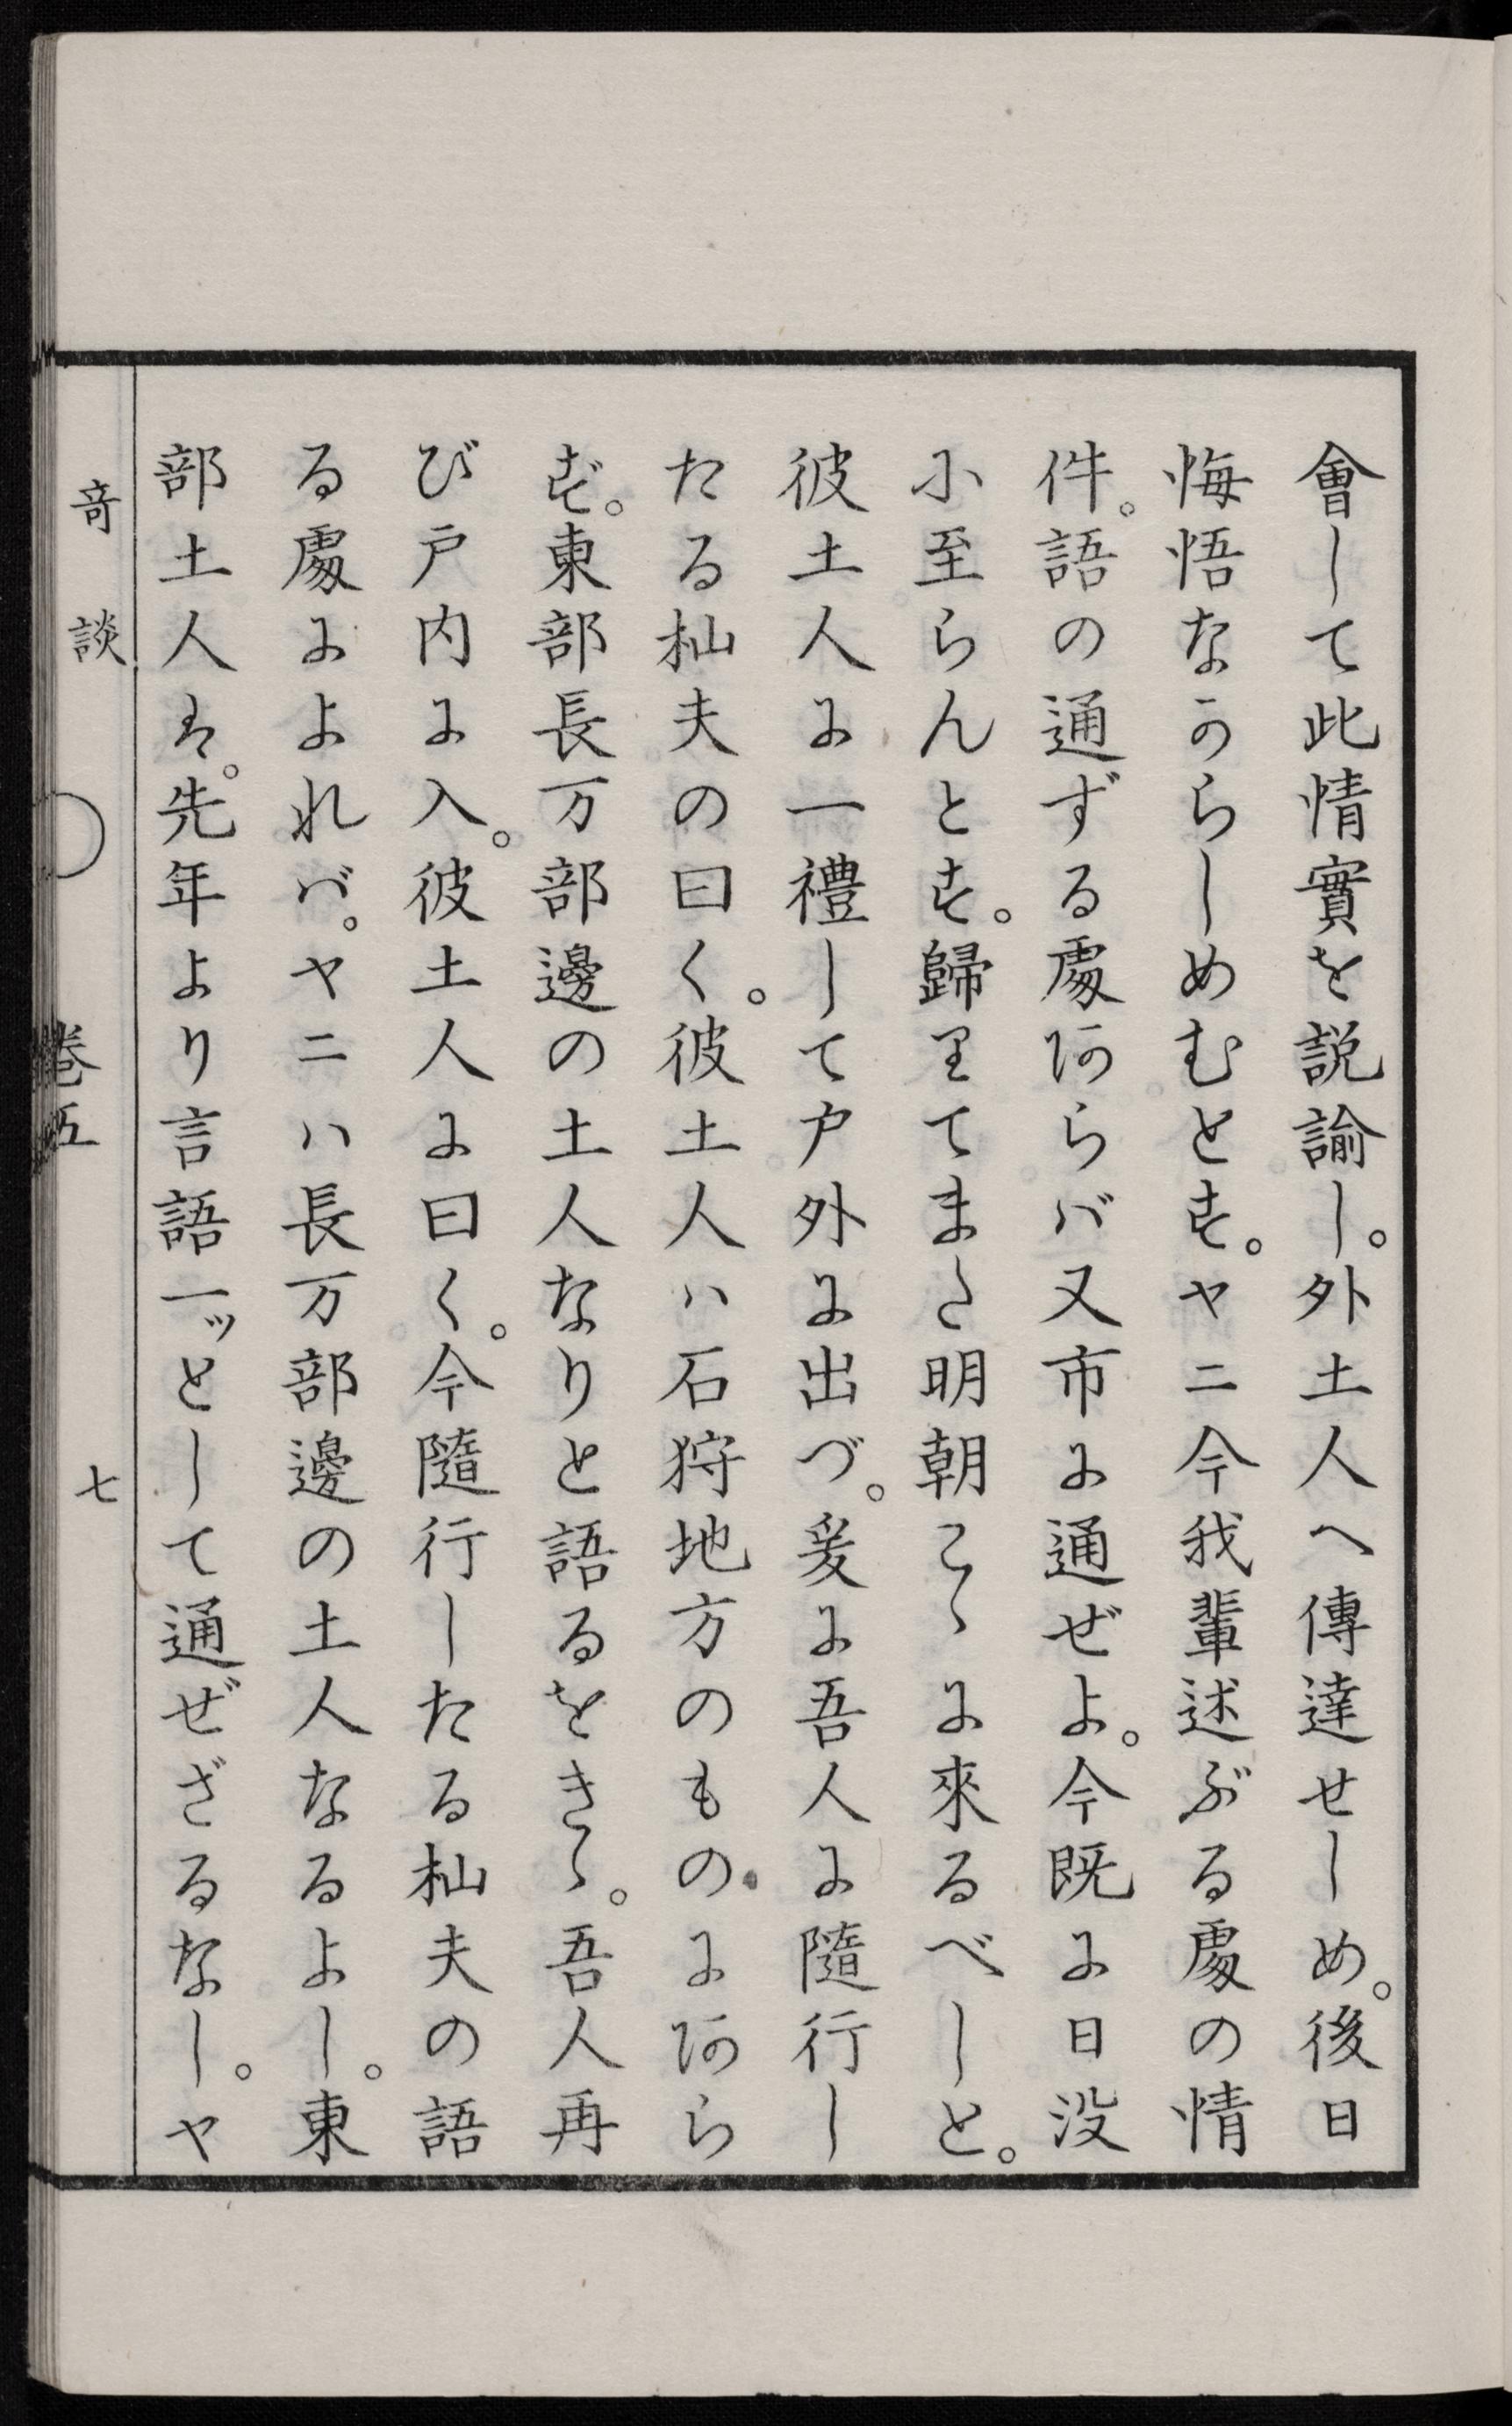 會して此情實を説諭し。外土人へ傳達せしめ。後日
悔悟なからしめむとす。ヤニ今我輩述ぶる處の情
件。語の通ずる處あらバ又市に通ぜよ。今既に日没
に至らんとす。歸りてまた明朝こゝに來るべしと。
彼土人に一禮して戸外に出づ。爰に吾人に隨行し
たる杣夫の曰く。彼土人ハ石狩地方のものにあら
ず。東部長万部邊の土人なりと語るをきゝ。吾人再
び戸内に入。彼土人に曰く。今隨行したる杣夫の語
る處によれバ。ヤニハ長万部邊の土人なるよし。東
部土人は。先年より言語一ッとして通ぜざるなし。ヤ
竒談 卷五 七